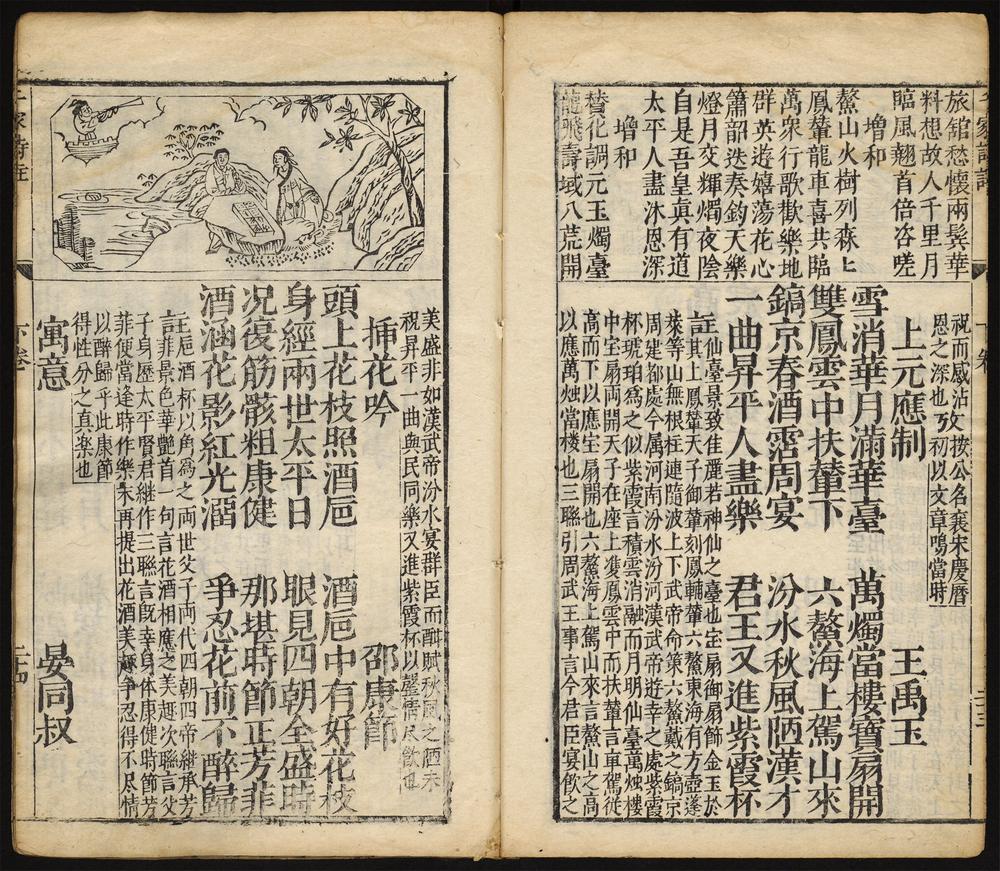 旅舘愁懷兩鬓華
料想故人千里月
臨風翹首倍咨嗟
增和
鰲山火樹列森匕
鳳輦龍車喜共臨
萬衆行歌歡樂地
群英遊嬉蕩花心
簫韶迭奏鈞天樂
燈月交輝燭夜陰
自是吾皇真有道
太平人盡沐恩深
增和
賛化調元玉燭臺
龍飛壽域八荒開
祝而感沾 攷 按公名襄宋慶曆
恩之深也 初以文章鳴當時
上元應制 王禹玉
雪消華月滿華臺 萬燭當樓寶扇開
雙鳳雲中扶輦下 六鰲海上駕山來
鎬京春酒霑周宴 汾水秋風陋漢才
一曲昇平人盡樂 君王又進紫霞杯
註仙臺景致佳麗若神仙之臺也宝扇御扇飾金玉於
其上鳳輦天子御輦刻鳳輔輦六鰲東海有方壺蓬
萊等山無根柱連隨波上下武帝命第六鰲戴之鎬京
周建都處今属河南汾水汾河漢武帝遊幸之處紫霞
杯琥珀為之似紫霞言積雲消融而月明仙臺萬燭樓
中宝扇両開天子在座上隻鳳雲中而扶輦言車駕從
髙而下以應宝扇開也六鰲海上駕山來言鰲山之高
以應萬燭當樓也三聯引周武王事言今君臣宴飲之
千家詩註
下卷
二十四
美盛非如漢武帝汾水宴群臣而酣賦秋風之陋未
祝昇平一曲與民同樂又進紫霞杯以罄情尽歡也
挿花吟 邵康節
頭上花枝照酒巵 酒巵中有好花枝
身經兩世太平日 眼見四朝全盛時
况復筋骸粗康健 那堪時節正芳菲
酒涵花影紅光溜 爭忍花前不醉歸
註巵酒杯以角為之両世父子両代四朝四帝継承芳
言菲景色華艶首一句言花酒相應之美趣次聯言父
子身歷太平賢君継作三聯言旣幸身体康健時節芳
菲便當逢時作樂末再提出花酒美趣爭忍得不尽情
以醉歸乎此康節
得性分之真楽也
寓意 晏同叔